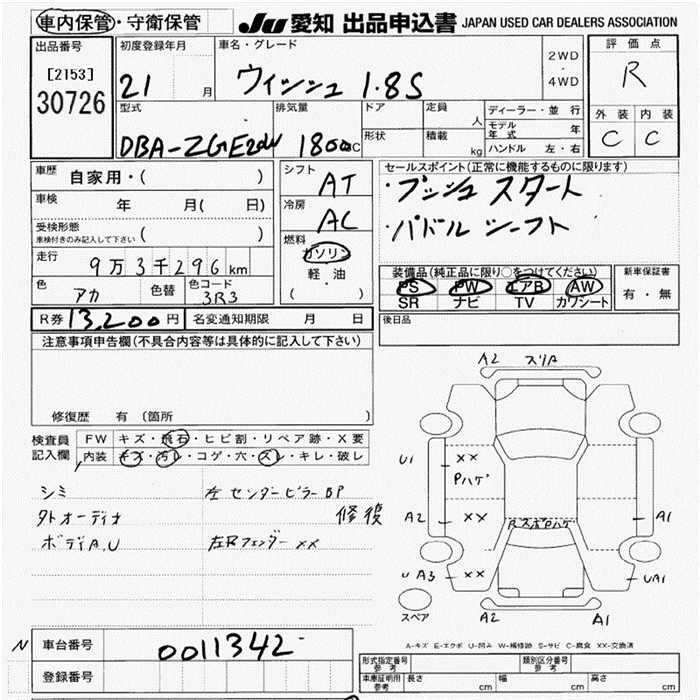 車内保管・守衛保管
JU 愛知 出品申込書 JAPAN USED CAR DEALERS ASSOCIATION
出品番号
[2153]
30726
初度登録年月
21 月
車名・グレード
ウィッシュ 1.8S
2WD
・
4WD
評価点
R
外装 内装
C C
型式
DBA-ZGE20W
排気量
1800CC
ドア
形状
定員
人
積載
kg
ディーラー・並行
モデル年式 年
ハンドル 左・右
車歴 自家用・( )
車検 年 月( 日)
受検形態
車検付きのみ記入して下さい ( )
走行 9万3千296km
色 アカ 色替 色コード 3R3
シフト AT
冷房 AC
燃料
ガソリン
軽・油
( )
セールスポイント(正常に機能するものに限ります)
・プッシュスタート
・パドルシーフト
装備品(純正品に限り○をつけてください)
PS PW エアB AW
SR ナビ TV カワシート
新車保証書
有・無
R券 13,200円 名変通知期限 月 日
後日品
注意事項申告欄(不具合内容等は具体的に記入して下さい)
修復歴 有(箇所 )
検査員
記入欄
FW キズ・飛石・ヒビ割・リペア跡・X要
内装 キズ・汚レ・コゲ・穴・スレ・キレ・破レ
シミ 左センターピラーBP
外オーディオ 修復
ボディA.U 左Rフェンダー××
A2 スリA
U1 ×× Pハゲ
A2 ×× Rスポハゲ A1
UA3 ×× UA1
スペア A2 A1
A-キズ E-エクボ U-凹み W-補修跡 S-サビ C-腐食 XX-交換済
N 車台番号 0011342
登録番号
形式指定番号 参考 類別区分番号 参考
車庫証明用 参考 長さ cm 幅 cm 高さ cm